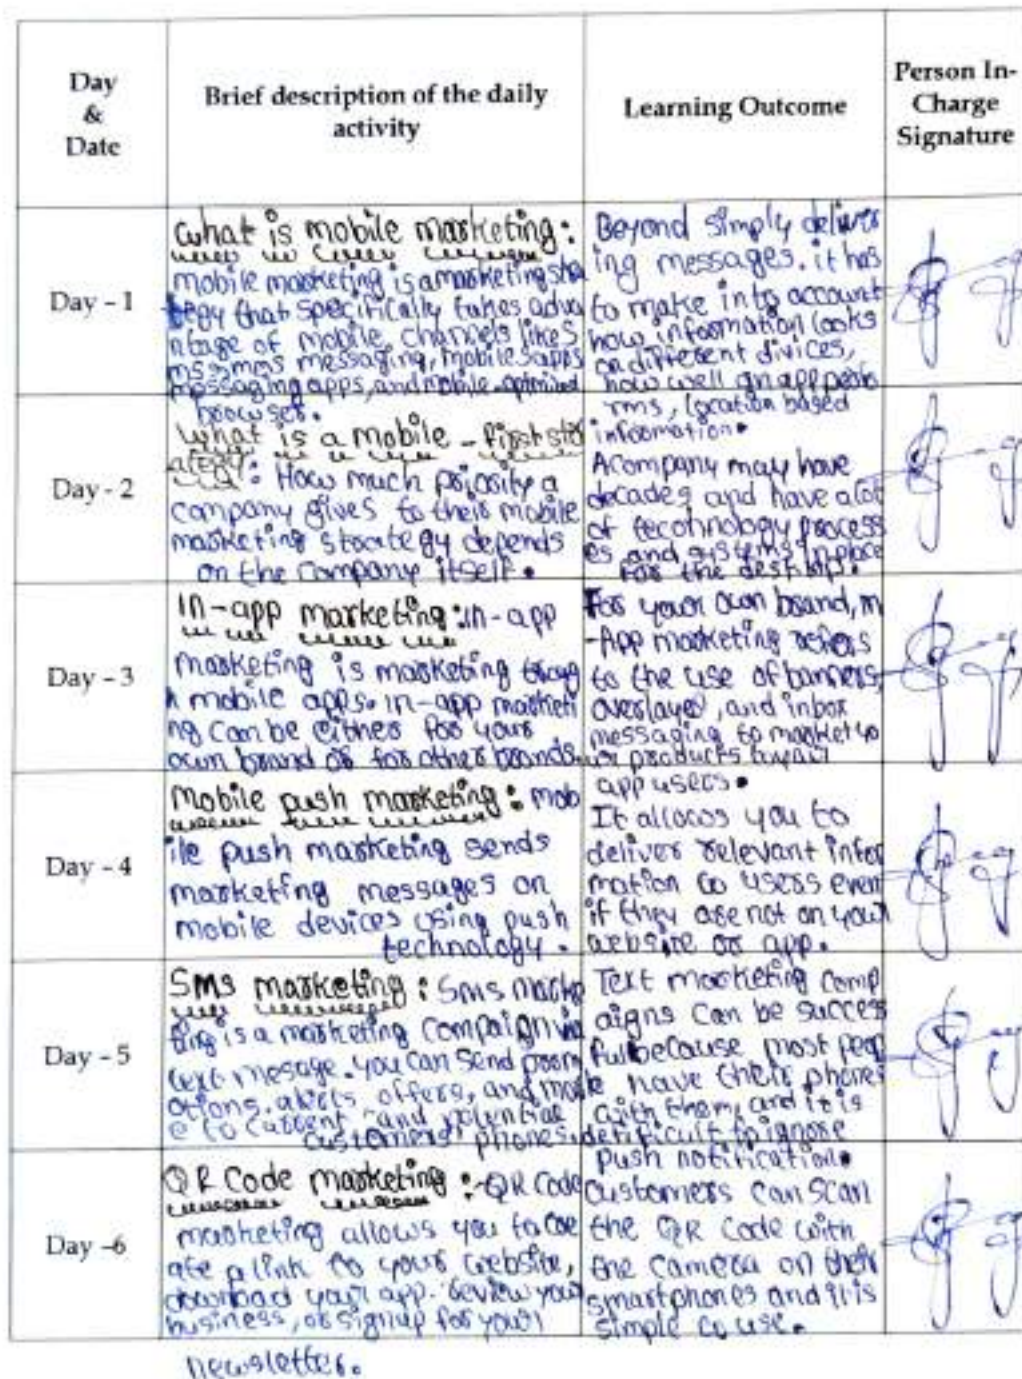 Day
&
Date
Brief description of the daily
activity
Learning Outcome
Person In-
Charge
Signature
Day - 1
What is mobile marketing:
mobile marketing is a marketing stra
tegy that specifically takes adva
ntage of mobile channels like s
ms mms messaging, mobiles apps
messaging apps, and mobile-optimized
browser.
Beyond simply deliver
ing messages. it has
to make into account
how information looks
on different divices,
how well an app perfo
rms, location based
information.
Day - 2
What is a mobile - first str
ategy: How much priority a
company gives to their mobile
marketing strategy depends
on the company itself.
A company may have
decades and have a lot
of techonology process
es and systems in place
for the desktop.
Day - 3
In-app marketing: in-app
marketing is marketing throug
h mobile apps. in-app marketi
ng can be either for your
own brand or for other brands.
For your own brand, in
-App marketing refers
to the use of banners,
overlayes, and inbox
messaging to market yo
ur products to your
app users.
Day - 4
Mobile push marketing: mob
ile push marketing sends
marketing messages on
mobile devices using push
technology.
It allows you to
deliver relevant infor
mation to users even
if they are not on your
website or app.
Day - 5
SMS marketing: Sms marke
ting is a marketing compaign via
text mesage. you can send prom
otions, alerts, offers, and mor
e to current and potential
customers' phones.
Text marketing comp
aigns can be success
ful because most peop
le have their phones
with them, and it is
defificult to ignore
push notification.
Day -6
QR Code marketing :- QR code
marketing allows you to cre
ate a link to your website,
download your app. review your
business, or signup for your
newsletter.
Customers can scan
the QR code with
the camera on their
smartphones and it is
simple to use.